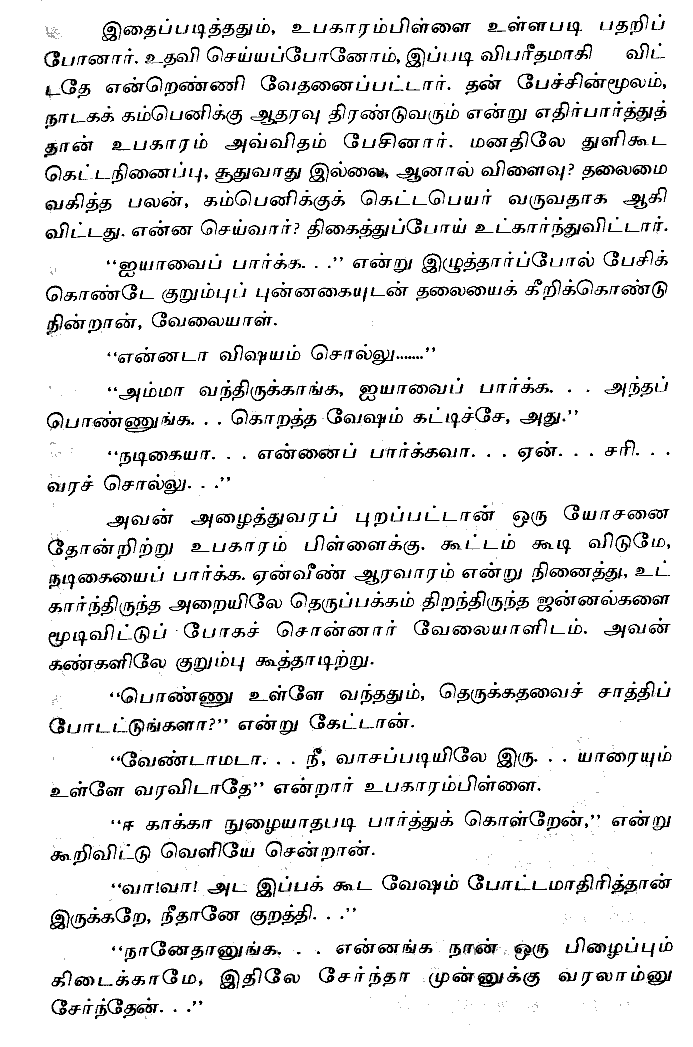 இதைப்படித்ததும், உபகாரம்பிள்ளை உள்ளபடி பதறிப்
போனார். உதவி செய்யப்போனோம், இப்படி விபரீதமாகி விட்
டதே என்றெண்ணி வேதனைப்பட்டார். தன் பேச்சின்மூலம்,
நாடகக் கம்பெனிக்கு ஆதரவு திரண்டுவரும் என்று எதிர்பார்த்துத்
தான் உபகாரம் அவ்விதம் பேசினார். மனதிலே துளிகூட
கெட்டநினைப்பு, சூதுவாது இல்லை, ஆனால் விளைவு? தலைமை
வகித்த பலன், கம்பெனிக்குக் கெட்டபெயர் வருவதாக ஆகி
விட்டது. என்ன செய்வார்? திகைத்துப்போய் உட்கார்ந்துவிட்டார்.
“ஐயாவைப் பார்க்க. . .” என்று இழுத்தார்ப்போல் பேசிக்
கொண்டே குறும்புப் புன்னகையுடன் தலையைக் கீறிக்கொண்டு
நின்றான், வேலையாள்.
“என்னடா விஷயம் சொல்லு.......”
“அம்மா வந்திருக்காங்க, ஐயாவைப் பார்க்க. . . அந்தப்
பொண்ணுங்க. . . கொறத்த வேஷம் கட்டிச்சே, அது.”
“நடிகையா. . . என்னைப் பார்க்கவா. . . ஏன். . . சரி. . .
வரச் சொல்லு. . .”
அவன் அழைத்துவரப் புறப்பட்டான் ஒரு யோசனை
தோன்றிற்று உபகாரம் பிள்ளைக்கு. கூட்டம் கூடி விடுமே,
நடிகையைப் பார்க்க. ஏன்வீண் ஆரவாரம் என்று நினைத்து, உட்
கார்ந்திருந்த அறையிலே தெருப்பக்கம் திறந்திருந்த ஜன்னல்களை
மூடிவிட்டுப் போகச் சொன்னார் வேலையாளிடம். அவன்
கண்களிலே குறும்பு கூத்தாடிற்று.
“பொண்ணு உள்ளே வந்ததும், தெருக்கதவைச் சாத்திப்
போடட்டுங்களா?” என்று கேட்டான்.
“வேண்டாமடா. . . நீ, வாசப்படியிலே இரு. . . யாரையும்
உள்ளே வரவிடாதே” என்றார் உபகாரம்பிள்ளை.
“ஈ காக்கா நுழையாதபடி பார்த்துக் கொள்றேன்,” என்று
கூறிவிட்டு வெளியே சென்றான்.
“வா!வா! அட இப்பக் கூட வேஷம் போட்டமாதிரித்தான்
இருக்கறே, நீதானே குறத்தி. . .”
“நானேதானுங்க. . . என்னங்க நான் ஒரு பிழைப்பும்
கிடைக்காமே, இதிலே சேர்ந்தா முன்னுக்கு வரலாம்னு
சேர்ந்தேன். . .”